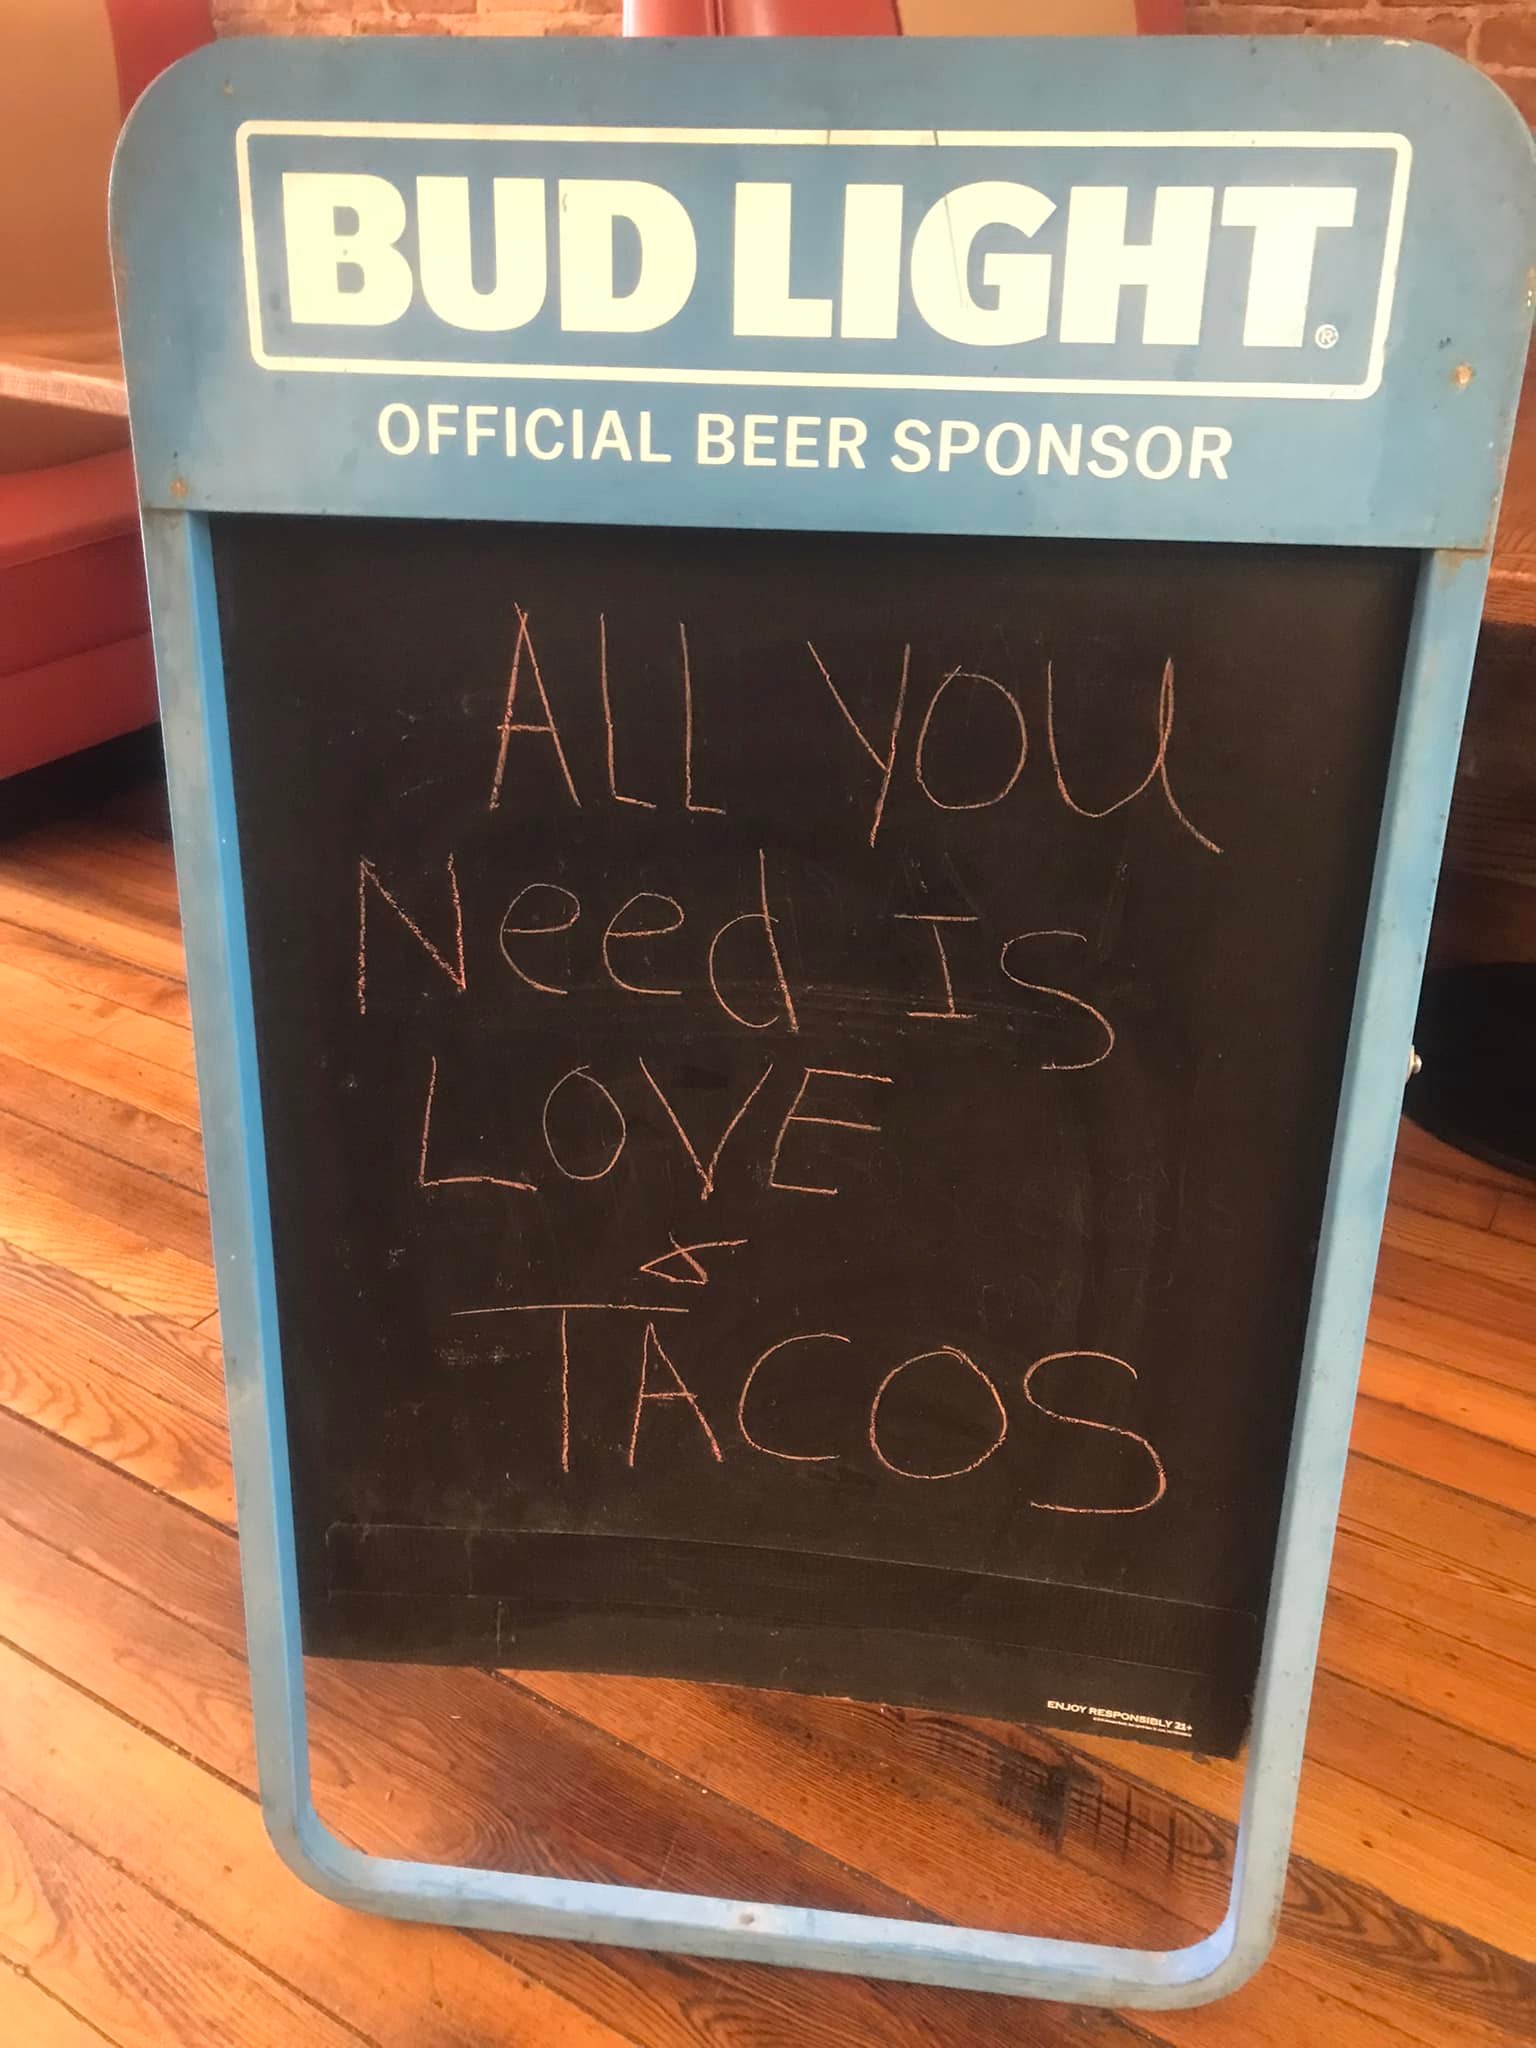 BUD LIGHT®
OFFICIAL BEER SPONSOR
ALL YOU
Need IS
LOVE
&
TACOS
ENJOY RESPONSIBLY 21+